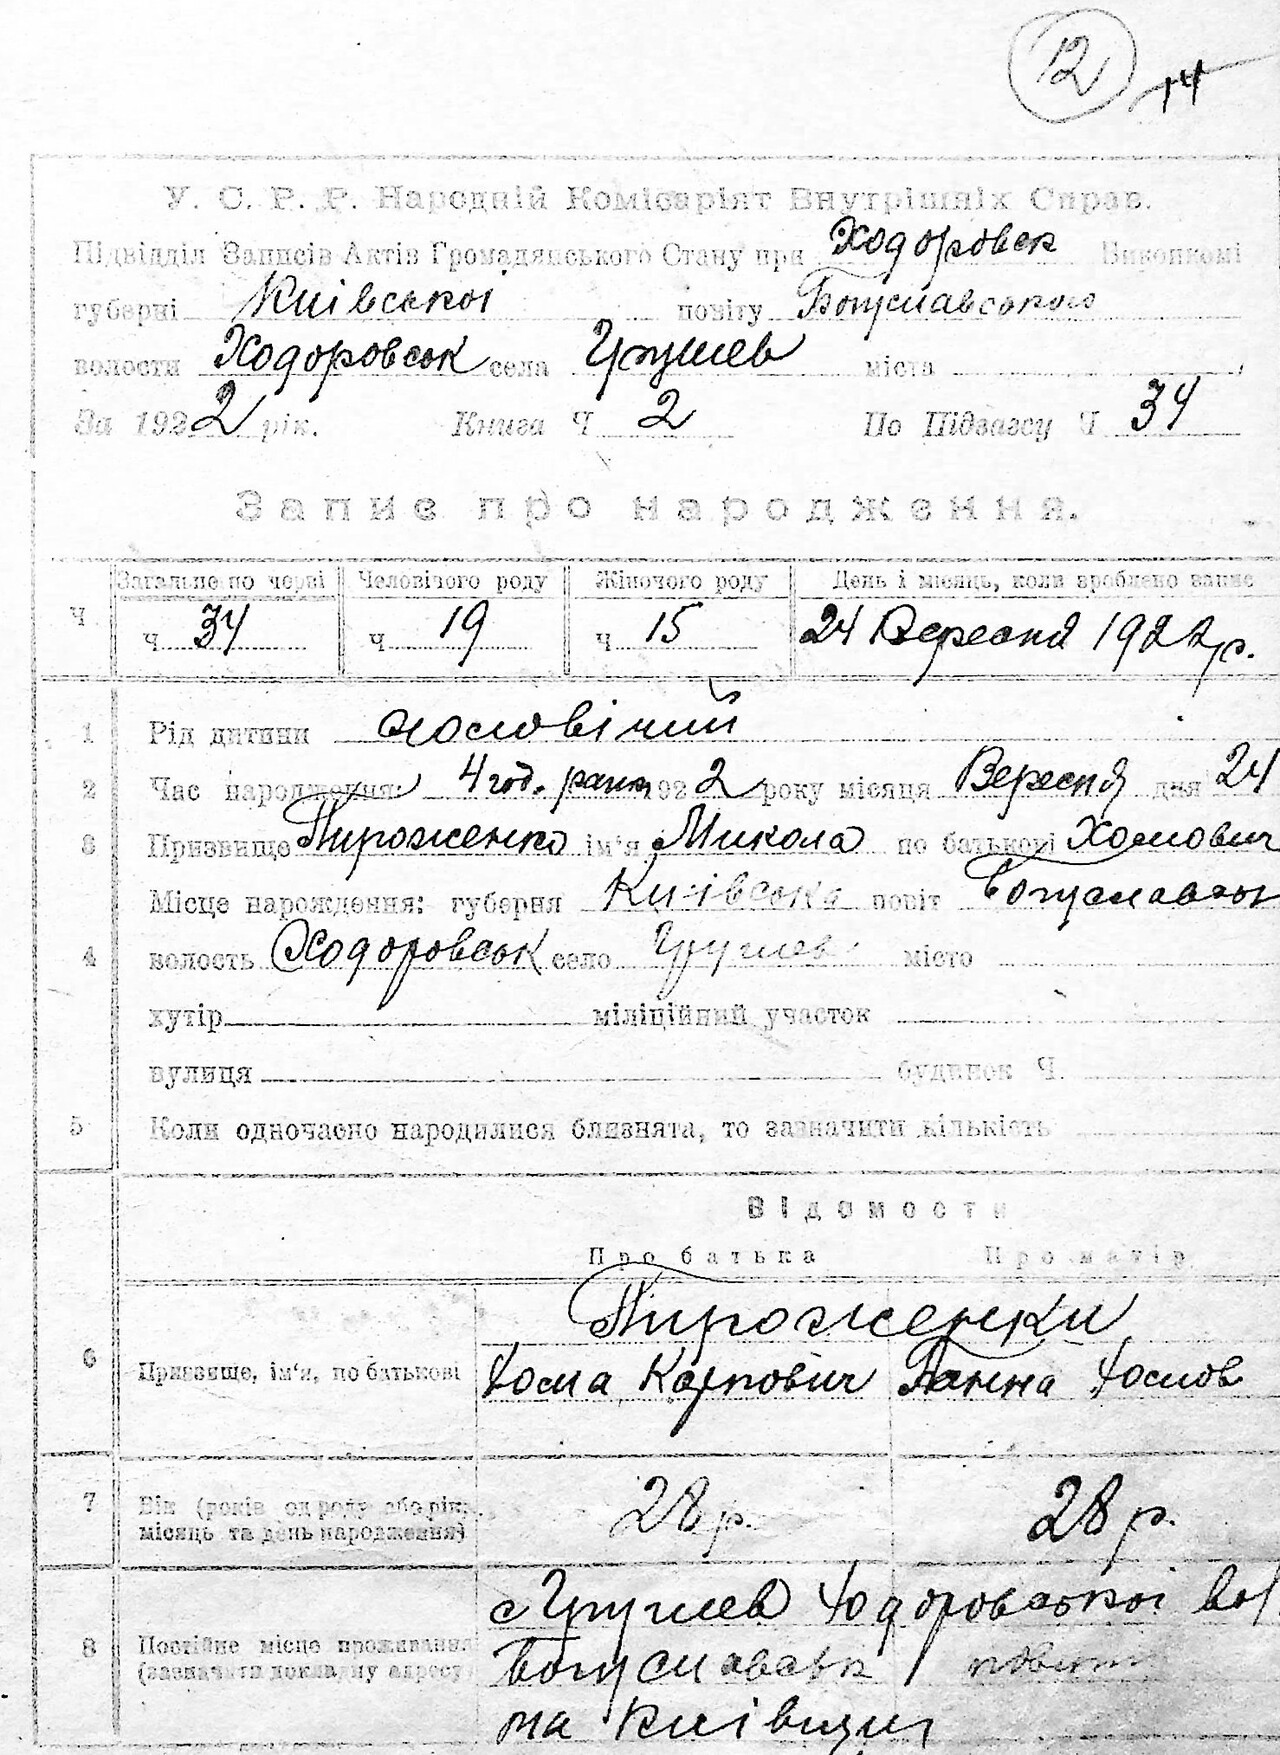 12 14
У. С. Р. Р. Народній Комісаріят Внутрішніх Справ.
Підвідділ Записів Актів Громадянського Стану при Ходоровск Виконкомі
губерні Київської повіту Богуславського
волости Ходоровськ села Грушев міста
За 1922 рік. Книга Ч 2 По Підзагсу Ч 34
Запис про народження.
Загальне по черві Человічого роду Жіночого роду День і місяць, коли зроблено запис
Ч ч 34 ч 19 ч 15 24 Вересня 1922 р.
1 Рід дитини чоловічий
2 Час народження: 4 год. ранку 1922 року місяця Вересня дня 24
3 Призвище Пироженко ім'я Микола по батькові Хомович
Місце нарождення: губерня Київська повіт Богуславськ
4 волость Ходоровськ село Грушев місто
хутір міліційний участок
вулиця будинок Ч.
5 Коли одночасно народилися близнята, то зазначити кількість
Відомости
Про батька Про матір
Пироженки
6 Призвище, ім'я, по батькові Хома Карпович Ганна Хомов
7 Вік (років од роду або рік, місяць та день народження) 28 р. 28 р.
с Грушев Ходоровської вол.
8 Постійне місце проживання (зазначити докладну адресу) Богуславськ повіту
на Київщин